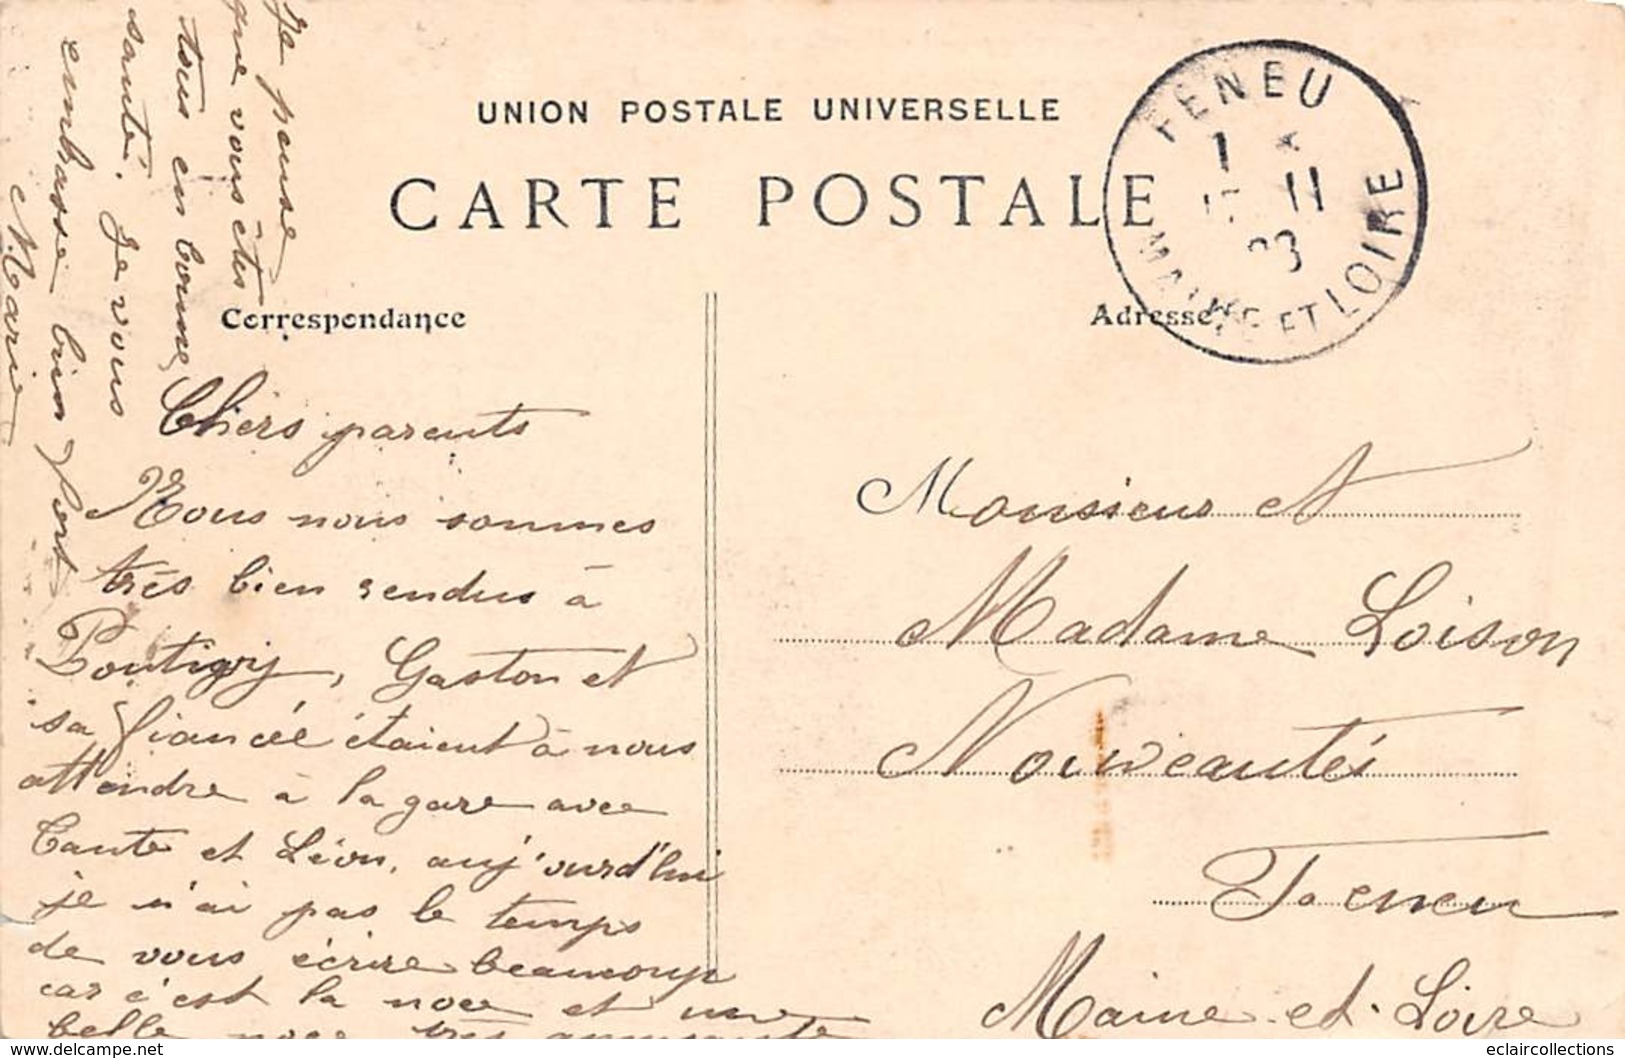 UNION POSTALE UNIVERSELLE
CARTE POSTALE
FENEU
1
11
MAINE ET LOIRE
Correspondance
Adresse
Chers parents
Nous nous sommes
très bien rendus à
Pontigny, Gaston et
sa fiancée étaient à nous
attendre à la gare avec
Tante et Léon, auj'ourd'hui
je n'ai pas le temps
de vous écrire beaucoup
car c'est la noce et une
belle noce très amusante
Je pense
que vous êtes
tous en bonne
santé. Je vous
embrasse bien fort
Marie
Monsieur et
Madame Loison
Nouveautés
Feneu
Maine-et-Loire
www.delcampe.net
eclaircollections